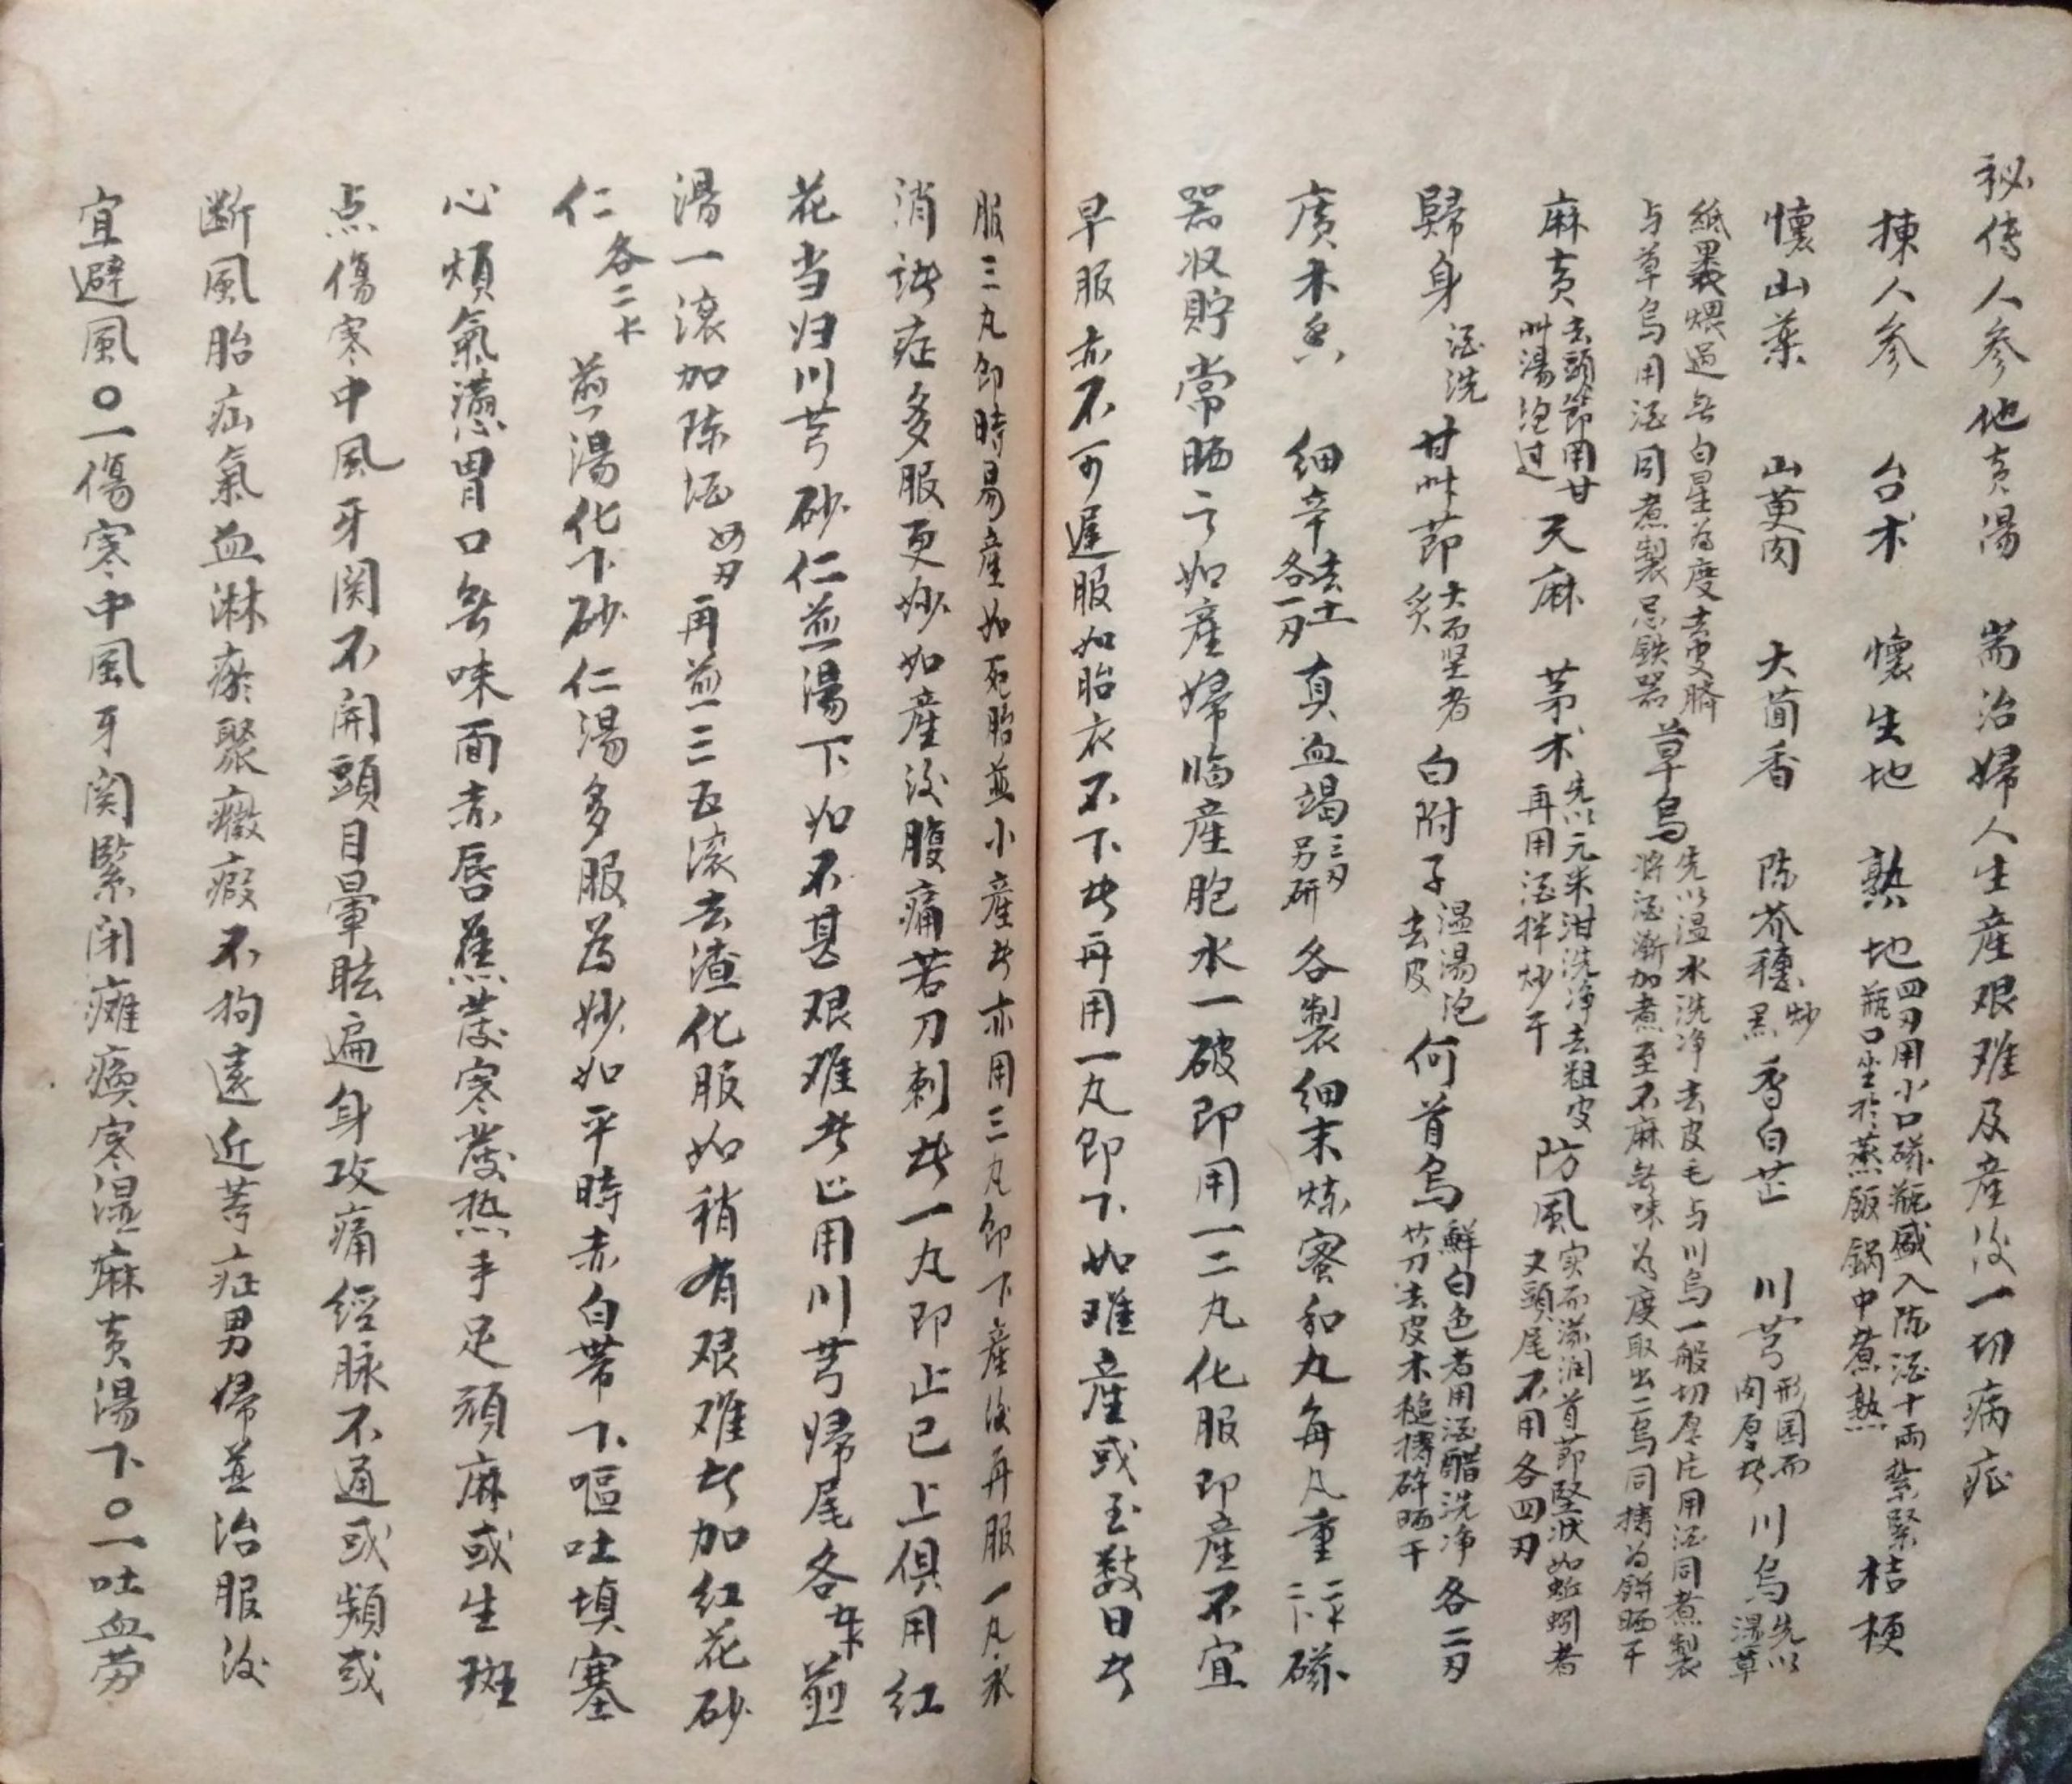 秘傳人參他黄湯　耑治婦人生産艰难及産後一切病症
揀人參　台术　懷生地　熟地四刄用小口磁瓶盛入陈酒十両紮緊瓶口坐於蒸飯鍋中煮熟　桔梗
懷山药　山萸肉　大茴香　陈芥穗炒黑　香白芷　川芎形囯而肉厚者　川烏先以湿草
紙裹煨過无白星為度去皮臍与草烏用酒同煮製忌鉄器　草烏先以温水洗净去皮毛与川烏一般切厚片用酒同煮製将酒漸加煮至不麻无味为度取出二烏同搗为餅晒干
麻黄去頭節用甘艸湯泡过　天麻　茅术先以元米泔洗净去粗皮再用酒拌炒干　防風实而滋润首節堅狀如蚯蚓者叉頭尾不用各四刄
歸身酒洗　甘艸節大而坚者炙　白附子温湯泡去皮　何首烏鮮白色者用酒醋洗净竹刀去皮木槌搗碎晒干　各二刄
廣木香　細辛去土各一刄　真血竭三刄另研　各製細末炼蜜和丸每丸重二下磁
器收貯常晒之如産婦临産胞水一破即用一二丸化服即産不宜
早服亦不可遅服如胎衣不下者再用一丸即下如难産或至数日者
服三丸即時易産如死胎並小産者亦用三丸即下産後再服一丸永
消诸症多服更妙如産後腹痛若刀刺者一丸即止已上俱用红
花当归川芎砂仁煎湯下如不甚艰难者止用川芎归尾各煎
湯一滚加陈酒刄再煎三五滚去渣化服如稍有艰难者加红花砂
仁各二下煎湯化下砂仁湯多服為妙如平時赤白带下嘔吐填塞
心煩氣懑胃口无味面赤唇蕉發寒發热手足顽麻或生斑
点傷寒中風牙関不開頭目暈眩遍身攻痛經脉不通或頻或
断風胎疝氣血淋瘀聚癥瘕不拘遠近等症男婦並治服後
宜避風○一傷寒中風牙関緊闭癱瘓寒湿麻黄湯下○一吐血劳